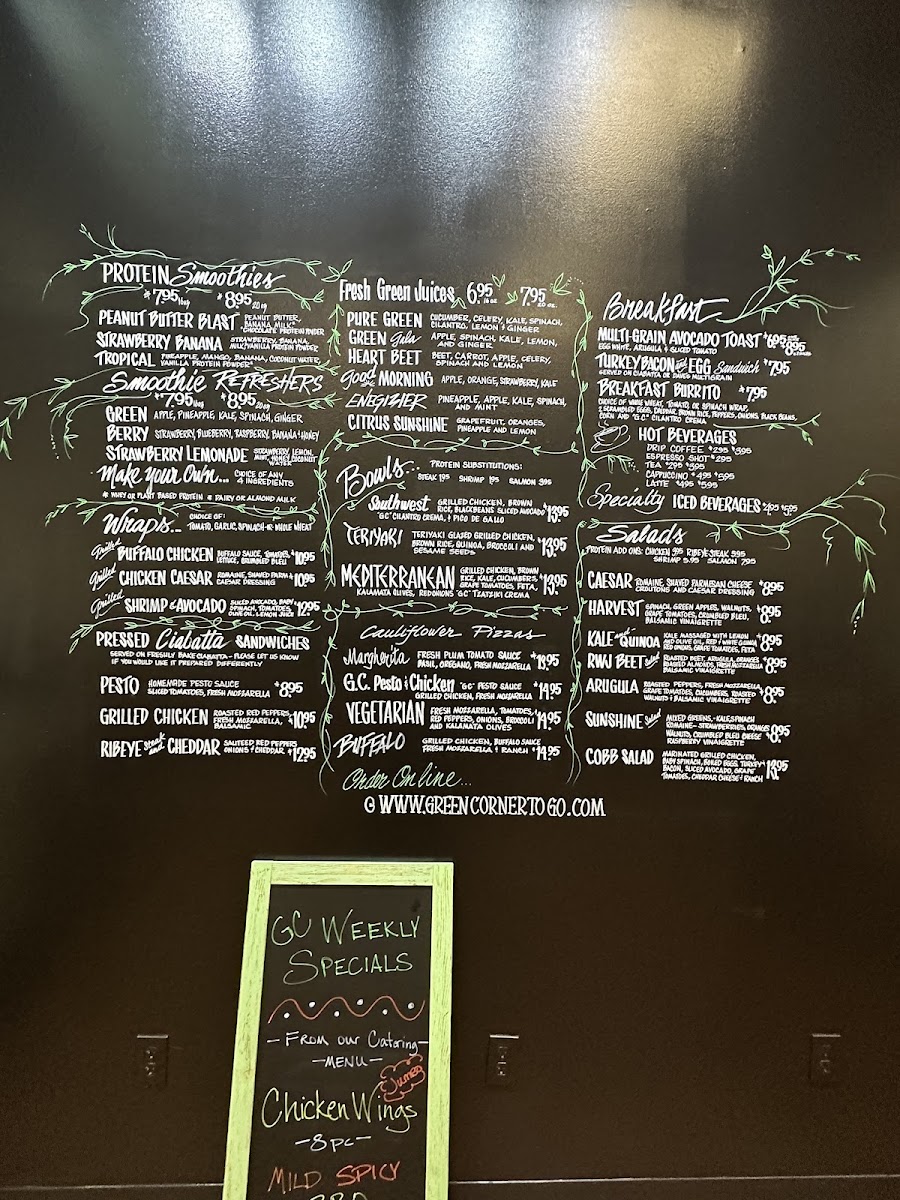 PROTEIN Smoothies
$7.95 16oz $8.95 20oz
PEANUT BUTTER BLAST PEANUT BUTTER,
BANANA, MILK
CHOCOLATE PROTEIN POWDER
STRAWBERRY BANANA STRAWBERRY, BANANA,
MILK, VANILLA PROTEIN POWDER
TROPICAL PINEAPPLE, MANGO, BANANA, COCONUT WATER,
VANILLA PROTEIN POWDER
Smoothie REFRESHERS
$7.95 16oz $8.95 20oz
GREEN APPLE, PINEAPPLE, KALE, SPINACH, GINGER
BERRY STRAWBERRY, BLUEBERRY, RASPBERRY, BANANA & HONEY
STRAWBERRY LEMONADE STRAWBERRY, LEMON,
MINT, HONEY, COCONUT
WATER
Make your Own... CHOICE OF ANY
4 INGREDIENTS
* WHEY OR PLANT BASED PROTEIN * DAIRY OR ALMOND MILK
Wraps... CHOICE OF:
TOMATO, GARLIC, SPINACH OR WHOLE WHEAT
Grilled BUFFALO CHICKEN BUFFALO SAUCE, TOMATOES,
LETTUCE, CRUMBLED BLEU $10.95
Grilled CHICKEN CAESAR ROMAINE, SHAVED PARM &
CAESAR DRESSING $10.95
Grilled SHRIMP & AVOCADO SLICED AVOCADO, BABY
SPINACH, TOMATOES,
OLIVE OIL & LEMON JUICE $12.95
PRESSED Ciabatta SANDWICHES
SERVED ON FRESHLY BAKE CIABATTA - PLEASE LET US KNOW
IF YOU WOULD LIKE IT PREPARED DIFFERENTLY
PESTO HOMEMADE PESTO SAUCE
SLICED TOMATOES, FRESH MOZZARELLA $8.95
GRILLED CHICKEN ROASTED RED PEPPERS,
FRESH MOZZARELLA,
BALSAMIC $10.95
RIBEYE steak and CHEDDAR SAUTEED RED PEPPERS
ONIONS & CHEDDAR, $12.95
Fresh Green Juices 6.95 16 oz $7.95 20 oz.
PURE GREEN CUCUMBER, CELERY, KALE, SPINACH,
CILANTRO, LEMON & GINGER
GREEN Gala APPLE, SPINACH, KALE, LEMON,
AND GINGER
HEART BEET BEET, CARROT, APPLE, CELERY,
SPINACH AND LEMON
Good MORNING APPLE, ORANGE, STRAWBERRY, KALE
ENEGIZIER PINEAPPLE, APPLE, KALE, SPINACH,
AND MINT
CITRUS SUNSHINE GRAPEFRUIT, ORANGES,
PINEAPPLE AND LEMON
Bowls... PROTEIN SUBSTITUTIONS:
STEAK 1.95 SHRIMP 1.95 SALMON 3.95
Southwest GRILLED CHICKEN, BROWN
RICE, BLACK BEANS SLICED AVOCADO
"GC" CILANTRO CREMA, & PICO DE GALLO $13.95
TERIYAKI TERIYAKI GLAZED GRILLED CHICKEN,
BROWN RICE, QUINOA, BROCCOLI AND
SESAME SEEDS $13.95
MEDITERRANEAN GRILLED CHICKEN, BROWN
RICE, KALE, CUCUMBERS,
GRAPE TOMATOES, FETA,
KALAMATA OLIVES, RED ONIONS "GC" TZATZIKI CREMA $13.95
Cauliflower Pizzas
Margherita FRESH PLUM TOMATO SAUCE
BASIL, OREGANO, FRESH MOZZARELLA $13.95
G.C. Pesto & Chicken "GC" PESTO SAUCE
GRILLED CHICKEN, FRESH MOZZARELLA $14.95
VEGETARIAN FRESH MOZZARELLA, TOMATOES,
RED PEPPERS, ONIONS, BROCCOLI
AND KALAMATA OLIVES $14.95
BUFFALO GRILLED CHICKEN, BUFFALO SAUCE
FRESH MOZZARELLA & RANCH $14.95
Order Online...
@ WWW.GREENCORNERTOGO.COM
Breakfast
MULTI-GRAIN AVOCADO TOAST $6.95
EGG WHITE, ARUGULA & SLICED TOMATO 8.95
TURKEY BACON and EGG Sandwich $7.95
SERVED ON CIABATTA OR DAVES MULTIGRAIN
BREAKFAST BURRITO $7.95
CHOICE OF WHOLE WHEAT, TOMATO, OR SPINACH WRAP,
2 SCRAMBLED EGGS, CHEDDAR, BROWN RICE, PEPPERS, ONIONS, BLACK BEANS,
CORN AND "G.C." CILANTRO CREMA
HOT BEVERAGES
DRIP COFFEE $2.95 $3.95
ESPRESSO SHOT $2.95
TEA $2.95 $3.95
CAPPUCCINO $4.95 $5.95
LATTE $4.95 $5.95
Specialty ICED BEVERAGES $4.95 $5.95
Salads
PROTEIN ADD ONS: CHICKEN 3.95 RIBEYE STEAK 5.95
SHRIMP 5.95 SALMON 7.95
CAESAR ROMAINE, SHAVED PARMESAN CHEESE
CROUTONS AND CAESAR DRESSING $8.95
HARVEST SPINACH, GREEN APPLES, WALNUTS,
GRAPE TOMATOES, CRUMBLED BLEU,
BALSAMIC VINAIGRETTE $8.95
KALE and QUINOA KALE MASSAGED WITH LEMON
AND OLIVE OIL, RED & WHITE QUINOA
RED ONIONS, GRAPE TOMATOES, FETA $8.95
RAW BEET Salad ROASTED BEET, ARUGULA, ORANGES
ROASTED ALMONDS, FRESH MOZZARELLA
BALSAMIC VINAIGRETTE $8.95
ARUGULA ROASTED PEPPERS, FRESH MOZZARELLA,
GRAPE TOMATOES, CUCUMBERS, ROASTED
WALNUT & BALSAMIC VINAIGRETTE $8.95
SUNSHINE Salad MIXED GREENS - KALE, SPINACH
ROMAINE - STRAWBERRIES, ORANGES
WALNUTS, CRUMBLED BLEU CHEESE
RASPBERRY VINAIGRETTE $8.95
COBB SALAD MARINATED GRILLED CHICKEN,
BABY SPINACH, BOILED EGGS, TURKEY
BACON, SLICED AVOCADO, GRAPE
TOMATOES, CHEDDAR CHEESE & RANCH $13.95
GC WEEKLY
SPECIALS
- FROM our Catering -
- MENU -
Jumbo
Chicken Wings
- 8 pc -
MILD SPICY
BBQ